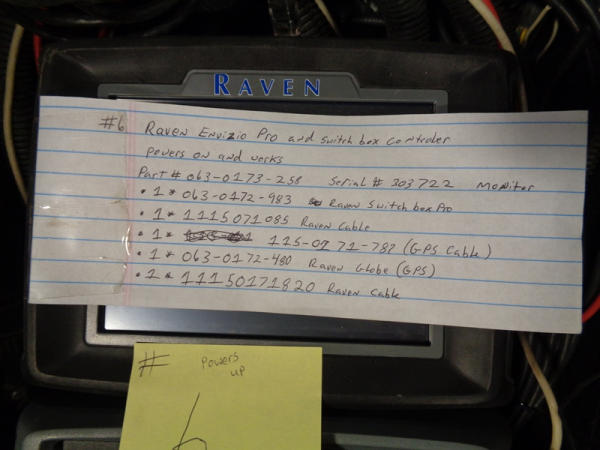 RAVEN
#6 Raven Envizio Pro and switch box Controler
Powers on and works
Part # 063-0173-258 Serial # 303722 Monitor
• 1 * 063-0172-983 Raven Switch box Pro
• 1 * 1115071085 Raven Cable
• 1 * 115-0171-787 (GPS Cable)
• 1 * 063-0172-480 Raven Globe (GPS)
• 1 * 11150171820 Raven Cable
# Powers
up
6